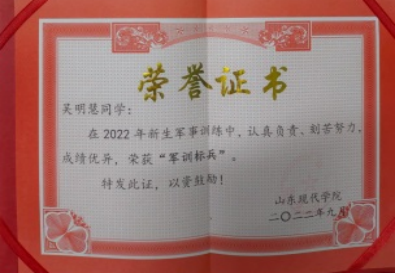 荣誉证书
吴明慧同学：
在2022年新生军事训练中，认真负责、刻苦努力，
成绩优异，荣获“军训标兵”。
特发此证，以资鼓励！
山东现代学院
二〇二二年九月